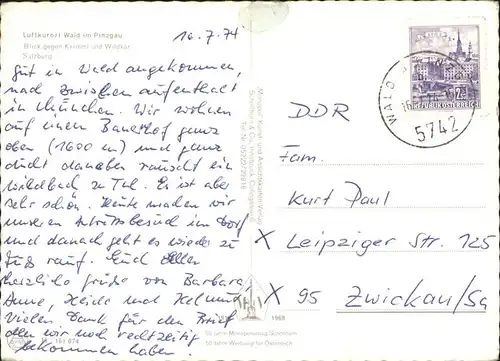 Luftkurort Wald im Pinzgau
Blick gegen Krimml und Wildkar
Salzburg
10.7.74
gut in Wald angekommen,
nach Zwischenaufenthalt
in München. Wir wohnen
auf einem Bauerhof ganz
oben (1600 m) und ganz
dicht daneben rauscht ein
Wildbach zu Tal. Es ist aber
sehr schön. Heute machen wir
unseren Antrittsbesuch im Dorf
und danach geht es wieder zu
Fuß rauf. Euch allen
herzliche Grüße von Barbara
Anne, Heide und Helmut
Vielen Dank für den Brief
den wir noch rechtzeitig
bekommen haben
161 074
DDR
Fam.
Kurt Paul
X Leipziger Str. 125
X 95 Zwickau/Sa
WALD
5742
REPUBLIK ÖSTERREICH
1968
50 Jahre Werbung für Österreich